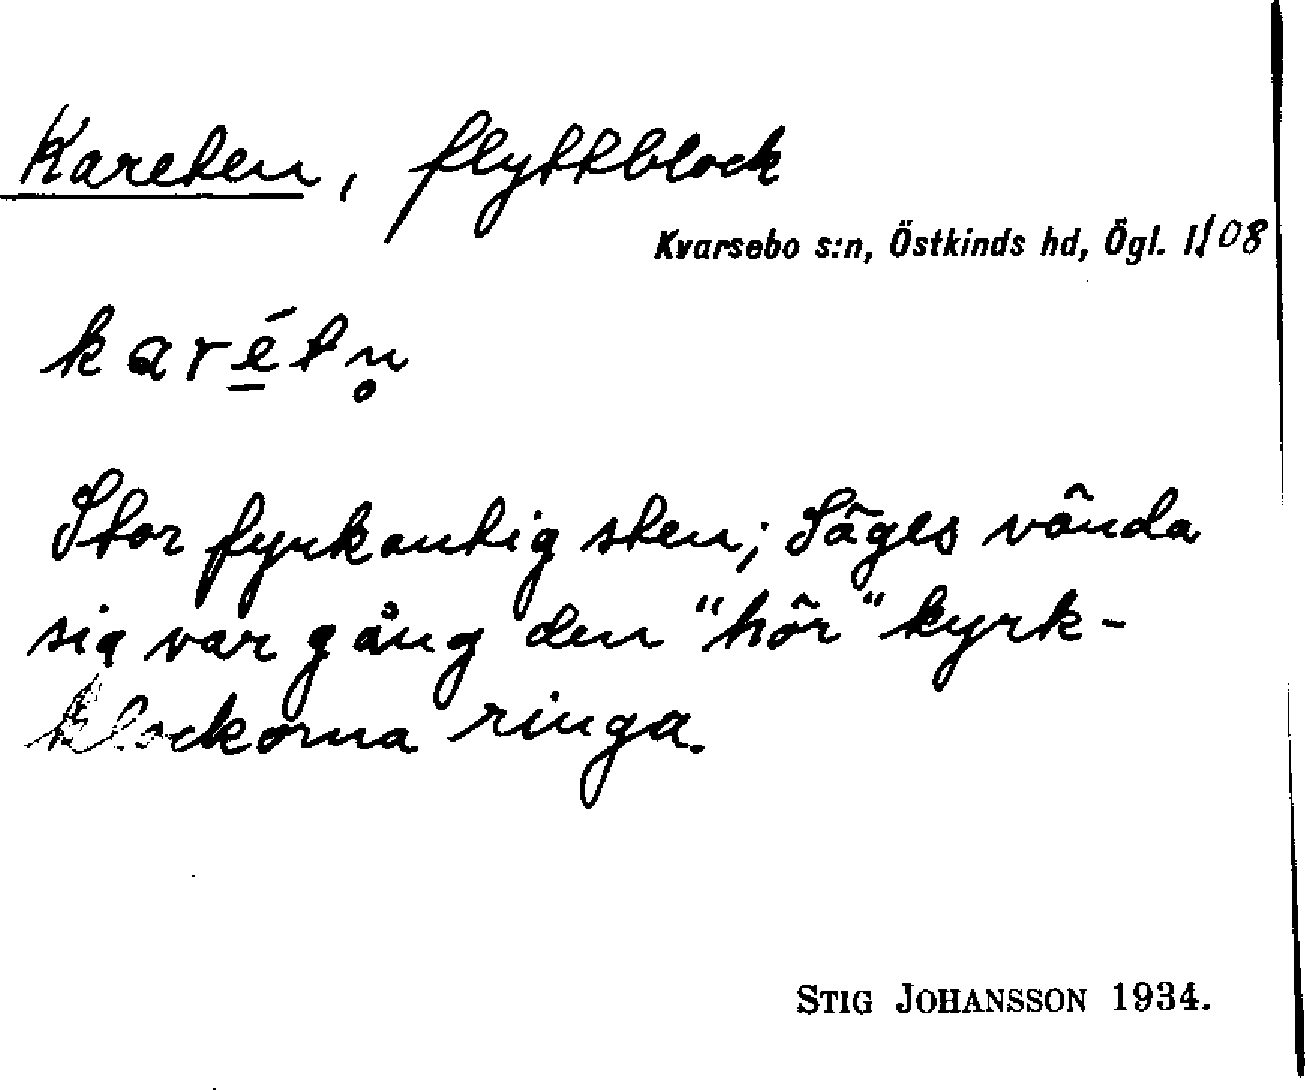 Kareten, flyttblock
Kvarsebo s:n, Östkinds hd, Ögl. 1/108
karétn̥
Stor fyrkantig sten; Säges vända
sig var gång den "hör" kyrk-
klockorna ringa.
STIG JOHANSSON 1934.